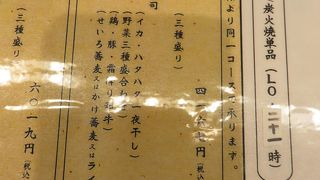 炭火焼単品（LO.二十一時）
様より同一コースで承ります。
（三種盛り）
四一六七円（税込
司
（イカ・ハタハタ一夜干し）
（野菜三種盛合
（鶏・豚・霜降り和牛）
（せいろ蕎麦又はかけ蕎麦又はラ
（三種盛り）
六〇一九円（税込